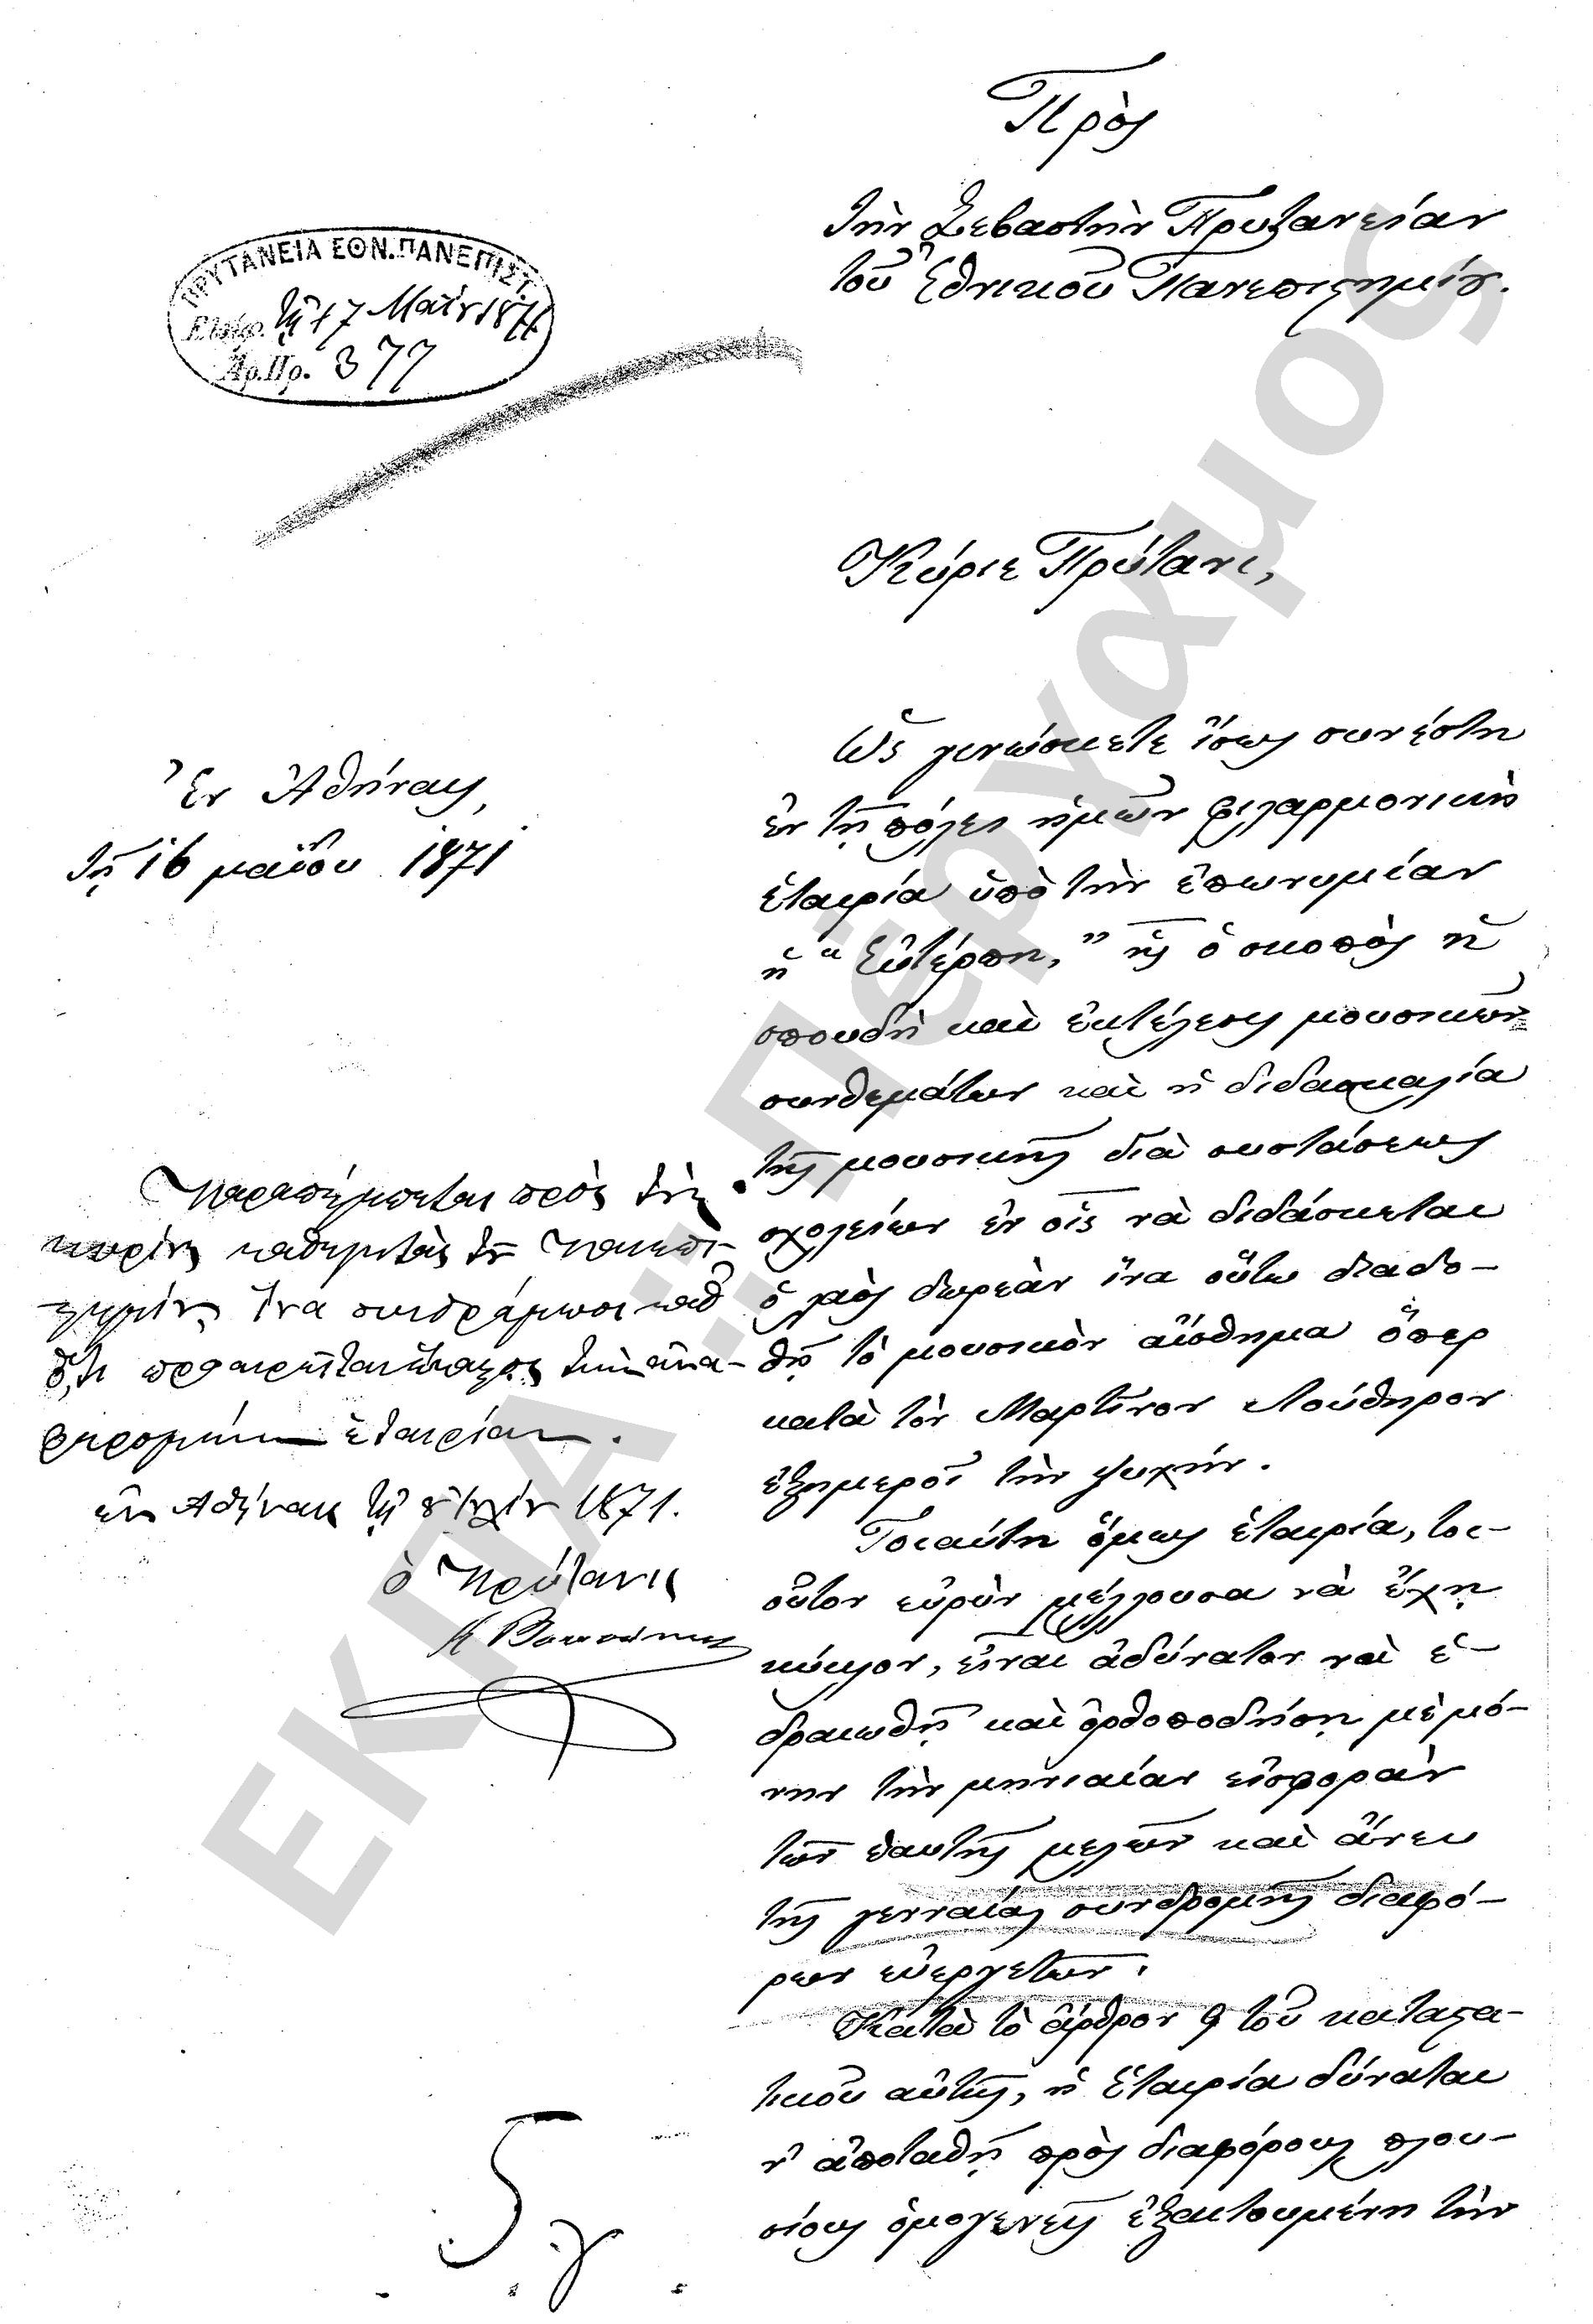 Πρὸς
τὴν Σεβαστὴν Πρυτανείαν
τοῦ Ἐθνικοῦ Πανεπιστημίου.
ΠΡΥΤΑΝΕΙΑ ΕΘΝ. ΠΑΝΕΠΙΣΤ.
Εἰσήχ. τῇ 17 Μαΐου 1871
Ἀρ. Πρ. 377
Κύριε Πρύτανι,
Ἐν Ἀθήναις,
τῇ 16 μαΐου 1871
Ὡς γινώσκετε ἴσως συνέστη
ἐν τῇ πόλει ἡμῶν φιλαρμονικὴ
ἑταιρία ὑπὸ τὴν ἐπωνυμίαν
ἡ "Εὐτέρπη," ἧς ὁ σκοπὸς ἡ
σπουδὴ καὶ ἐκτέλεσις μουσικῶν
συνθεμάτων καὶ ἡ διδασκαλία
τῆς μουσικῆς διὰ συστάσεως
σχολείων ἐν οἷς νὰ διδάσκεται
ὁ λαὸς δωρεὰν ἵνα οὕτω διαδο-
θῇ τὸ μουσικὸν αἴσθημα ὅπερ
κατὰ τὸν Μαρτῖνον Λούθηρον
ἐξημεροῖ τὴν ψυχήν.
Τοιαύτη ὅμως ἑταιρία, τοι-
οῦτον εὐρὺν μέλλουσα νὰ ἔχῃ
κύκλον, εἶναι ἀδύνατον νὰ ἑ-
δραιωθῇ καὶ ὀρθοποδήσῃ μὲ μό-
νην τὴν μηνιαίαν εἰσφορὰν
τῶν ἑαυτῆς μελῶν καὶ ἄνευ
τῆς γενναίας συνδρομῆς διαφό-
ρων εὐεργετῶν.
Κατὰ τὸ ἄρθρον 9 τοῦ καταστα-
τικοῦ αὐτῆς, ἡ Ἑταιρία δύναται
ν' ἀποταθῇ πρὸς διαφόρους πλου-
σίους ὁμογενεῖς ἐξαιτουμένη τὴν
Παραπέμπεται πρὸς τοὺς
κυρίους καθηγητὰς τοῦ Πανεπι-
στημίου, ἵνα συνδράμωσι καθ'
ὅ,τι προαιρεῖται ἕκαστος τὴν ἀνα-
φερομένην ἑταιρίαν.
ἐν Ἀθήναις τῇ 8 1871.
ὁ Πρύτανις
5
γ
ΕΚΠΑ :: Πέργαμος